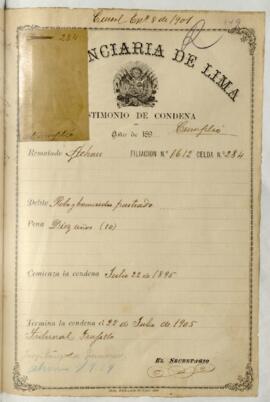 Enero 8 de 1901
284
NCIARIA DE LIMA
STIMONIO DE CONDENA
Año de 189
Cumplió
Rematado
FILIACION N.º 1612 CELDA N.º 284
Delito Robo y homicidio frustrado
Pena Diez años (10)
Comienza la condena Julio 22 de 1895
Termina la condena el 22 de Julio de 1905
Tribunal Trujillo
EL SECRETARIO